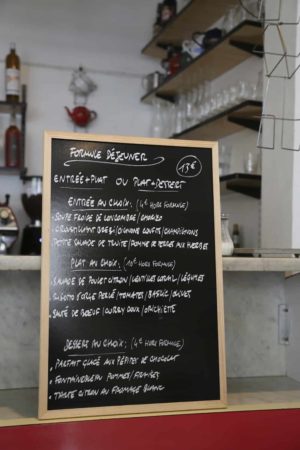 FORMULE DÉJEUNER
13€
ENTRÉE+PLAT OU PLAT+DESSERT
ENTRÉE AU CHOIX: (4€ HORS FORMULE)
• SOUPE FROIDE DE CONCOMBRE/CHORIZO
• CROUSTILLANT BREBIS/OIGNONS CONFITS/CHAMPIGNONS
• PETITE SALADE DE TRUITE/POMME DE TERRE AUX HERBES
PLAT AU CHOIX: (10€ HORS FORMULE)
• SALADE DE POULET CITRON/LENTILLES CORAIL/LÉGUMES
• RISOTTO D'ORGE PERLÉ/TOMATES/BASILIC/OLIVES
• SAUTÉ DE BOEUF/CURRY DOUX/ORECCHIETTE
DESSERT AU CHOIX: (4€ HORS FORMULE)
• PARFAIT GLACÉ AUX PÉPITES DE CHOCOLAT
• FONTAINEBLEAU POMMES/FRAISES
• TARTE CITRON AU FROMAGE BLANC